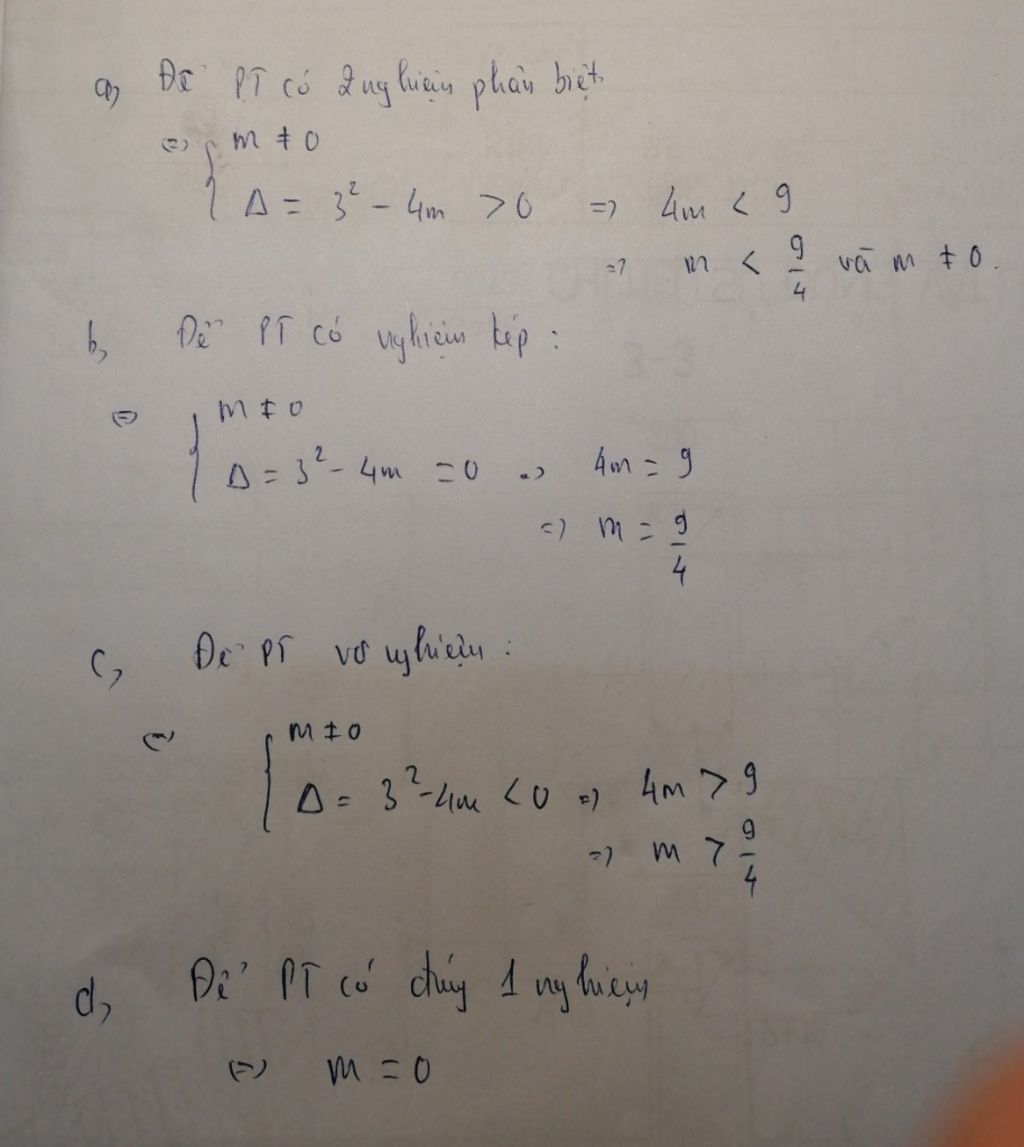 a, Để PT có 2 nghiệm phân biệt
<=> { m ≠ 0
Δ = 3² - 4m > 0 => 4m < 9
=> m < 9/4 và m ≠ 0.
b, Để PT có nghiệm kép :
<=> { m ≠ 0
Δ = 3² - 4m = 0 => 4m = 9
=> m = 9/4
c, Để PT vô nghiệm :
<=> { m ≠ 0
Δ = 3² - 4m < 0 => 4m > 9
=> m > 9/4
d, Để PT có đúng 1 nghiệm
<=> m = 0